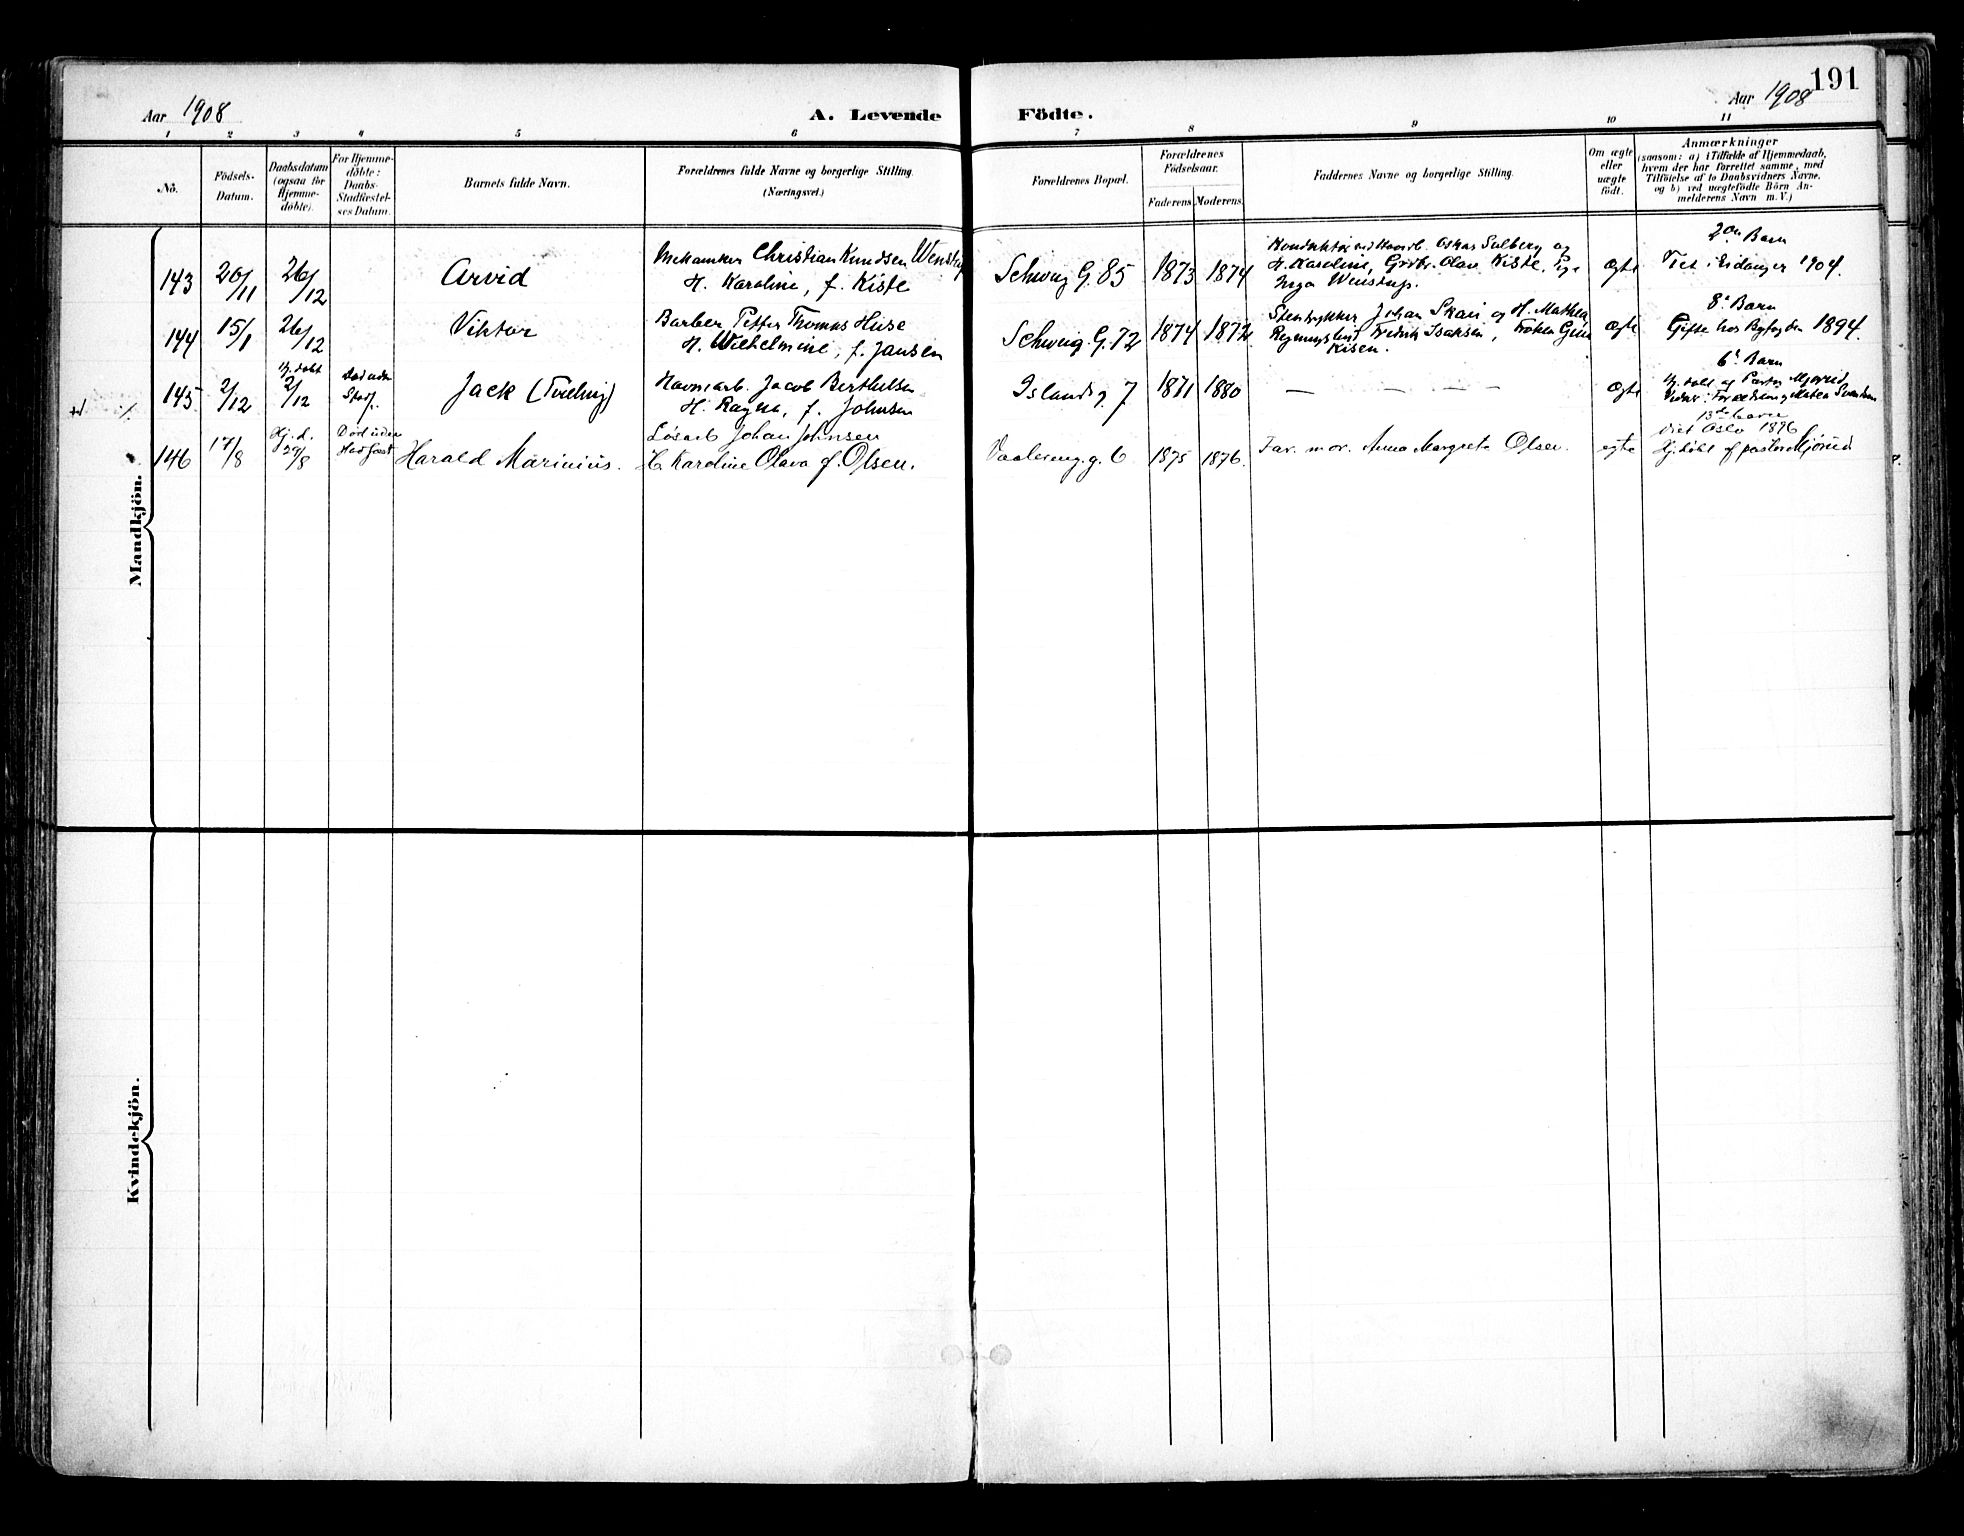 191
Aar 1908
A. Levende Födte.
Aar 1908
1 2 3 4 5 6 7 8 9 10 11
No.
Födsels-Datum.
Daabsdatum (ogsaa for Hjemme-döbte).
For Hjemme-döbte: Daabs-Stadfæstel-ses Datum.
Barnets fulde Navn.
Forældrenes fulde Navne og borgerlige Stilling.
(Næringsvei.)
Forældrenes Bopæl.
Forældrenes Födselsaar.
Faderens Moderens
Faddernes Navne og borgerlige Stilling.
Om ægte eller uægte födt.
Anmærkninger
(saasom: a) i Tilfælde af Hjemmedaab,
hvem der har forrettet samme, med
Tilföielse af to Daabsvidners Navne,
og b) ved uægtefödte Börn An-
melderens Navn m. V.)
Mandkjön.
143 20/11 26/12 Arvid
Mekaniker Christian Knudsen
H. Karoline, f. Kiste
Schweig G. 85 1873 1874
Oskar Solberg og
H. Karoline, Olav Kiste,
Inga Wenstup.
ægte
2det Barn
Viet i Eidanger 1904.
144 15/1 26/12 Viktor
Barber Petter Thomas Huse
H. Wilhelmine, f. Jansen
Schweig. G. 72 1874 1872
Johan Skau og H. Mathea
Fredrik Isaksen,
ægte
8de Barn
Gifte hos Byfogden 1894.
145 2/12 Hj. døbt 2/12 Død uden Stadf. Jack (Tvilling)
Havnearb. Jacob Berthelsen
H. Ragna, f. Johnsen
Islandsg. 7 1871 1880
— — — — —
ægte
6te Barn
Hj. døbt af Pastor Mjøriud
146 17/8 Hj. d. 29/8 Død uden Stadfæst Harald Marinius.
Løsarb Johan Johnsen
H Karoline Olava f. Olsen.
Vaalereng. g. 6 1875 1876.
Far. mor. Anna Margrete Olsen.
egte
13de barn
Viet Oslo 1896
Hj. døbt af pastor Mjøriud
Kvindekjön.